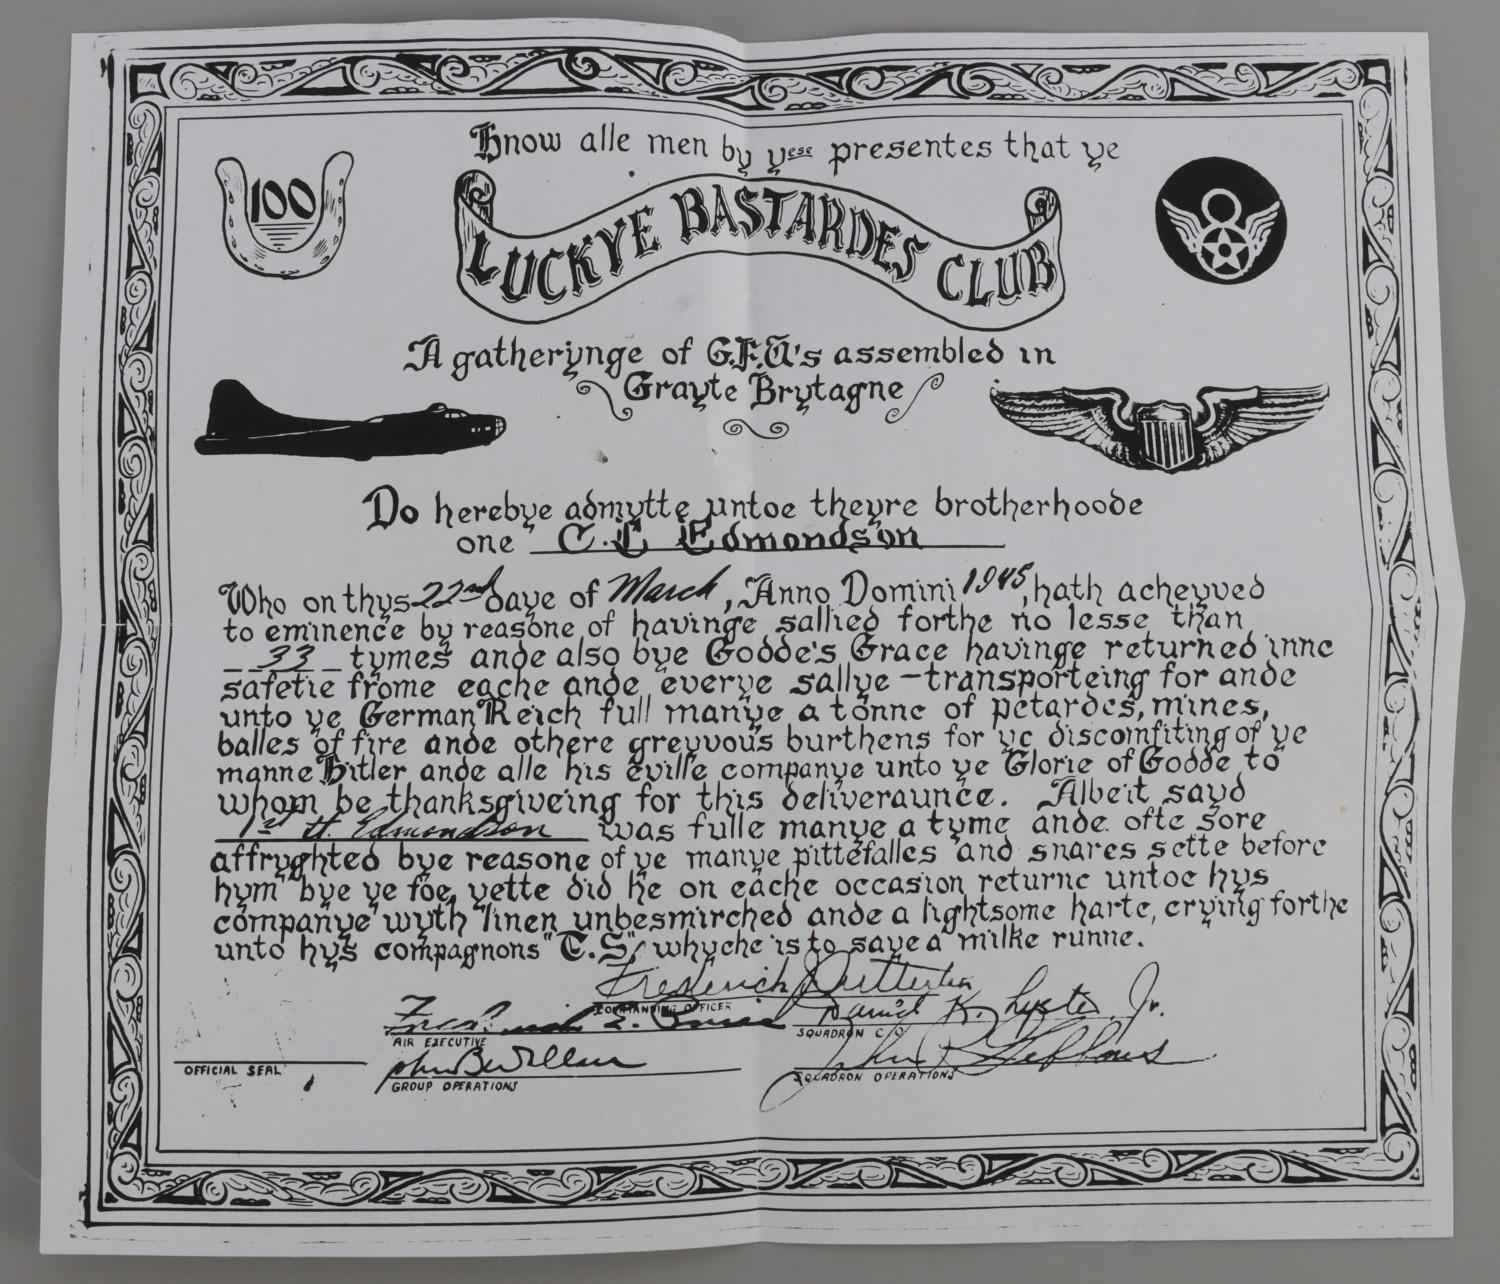 100
Know alle men by yese presentes that ye
LUCKYE BASTARDES CLUB
A gatherynge of G.F.U's assembled in
Grayte Brytagne
Do herebye admytte untoe theyre brotherhoode
one C. L Edmondson
Who on thys 22nd daye of March, Anno Domini 1945, hath acheyved
to eminence by reasone of havinge sallied forthe no lesse than
33 tymes ande also bye Godde's Grace havinge returned inne
safetie frome eache ande everye sallye - transporteing for ande
unto ye German Reich full manye a tonne of petardes, mines,
balles of fire ande othere greyvous burthens for ye discomfiting of ye
manne Hitler ande alle his eville companye unto ye Glorie of Godde to
whom be thanksgiveing for this deliveraunce. Albeit sayd
1st Lt. Edmondson was fulle manye a tyme ande ofte sore
affryghted bye reasone of ye manye pittefalles and snares sette before
hym bye ye foe, yette did he on eache occasion returne untoe hys
companye wyth linen unbesmirched ande a lightsome harte, crying forthe
unto hys compagnons "T.S", whyche is to saye a milke runne.
Frederick Sutterlin
COMMANDING OFFICER
AIR EXECUTIVE
SQUADRON C/O
OFFICIAL SEAL
GROUP OPERATIONS
SQUADRON OPERATIONS